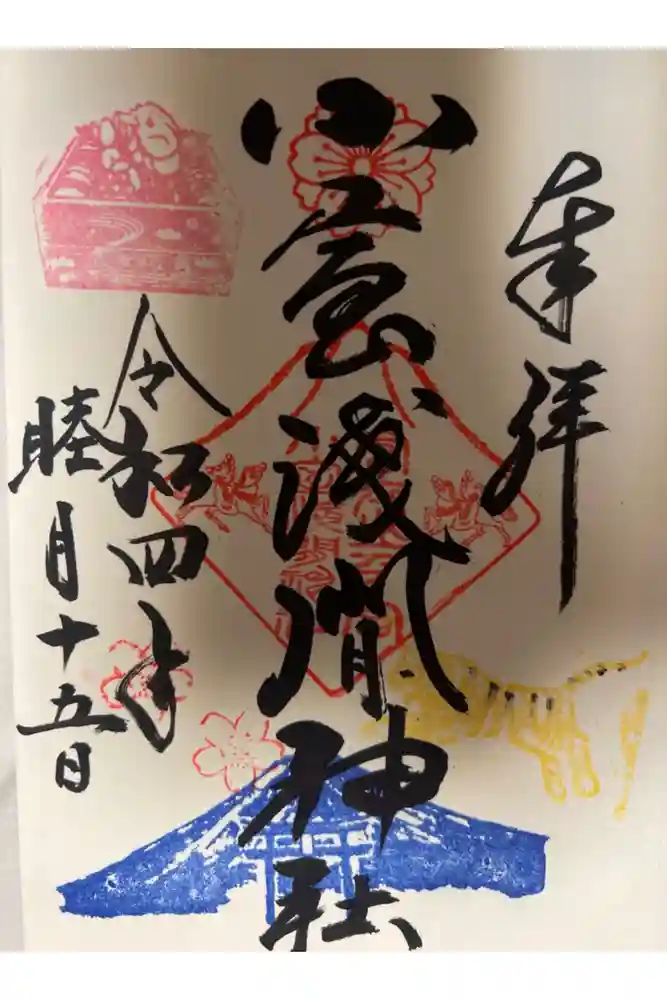 奉拝
小室浅間神社
令和四年
睦月十五日